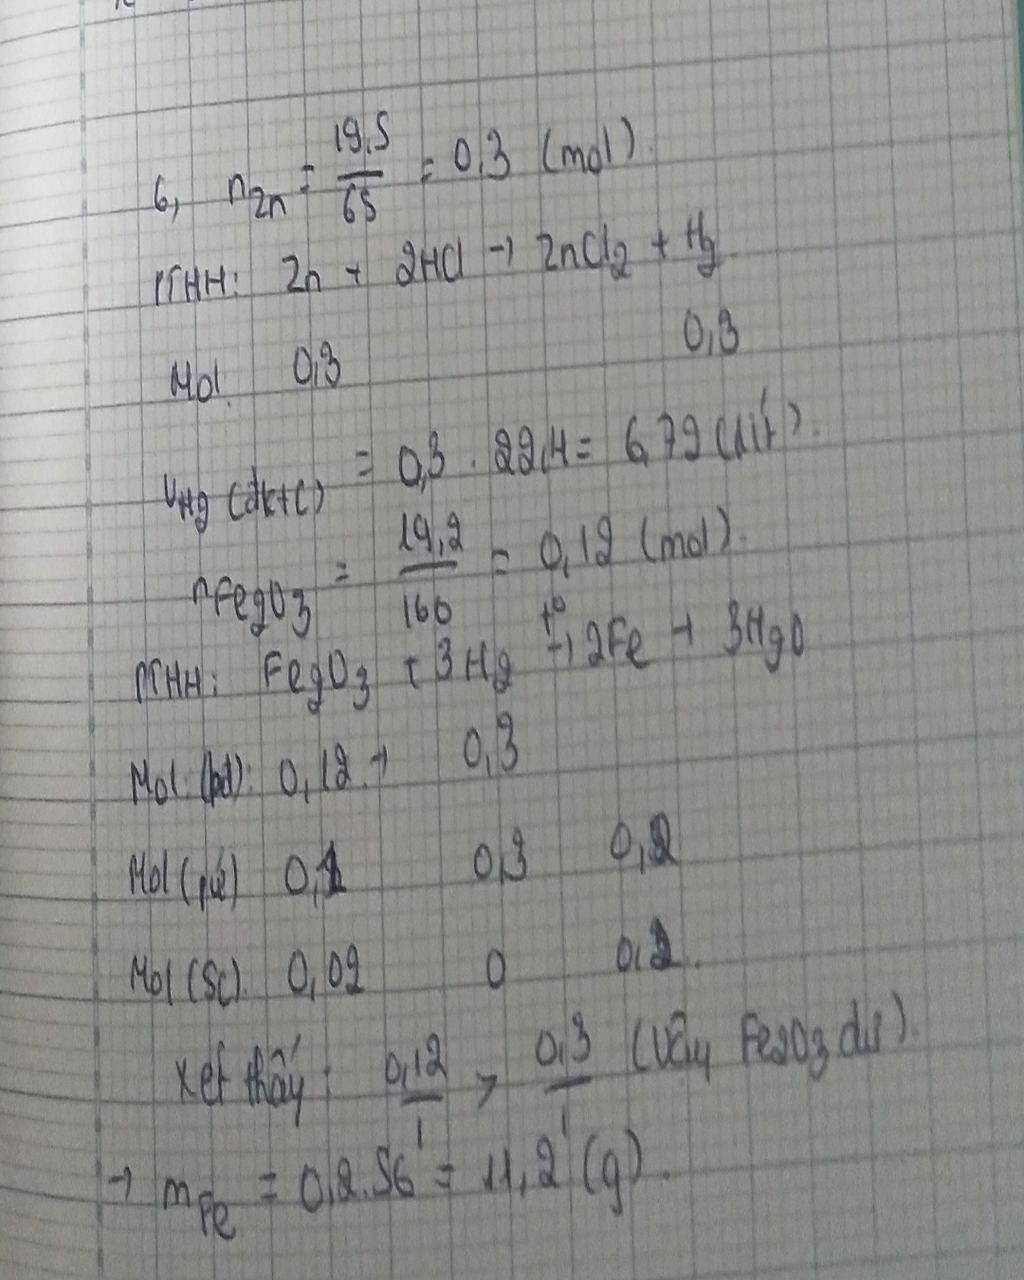 6, nZn = 19,5/65 = 0,3 (mol).
PTHH: Zn + 2HCl → ZnCl2 + H2
Mol. 0,3 0,3
VH2 (đktc) = 0,3 . 22,4 = 6,72 (lít).
nFe2O3 = 19,2/160 = 0,12 (mol).
PTHH: Fe2O3 + 3H2 t° → 2Fe + 3H2O
Mol (bđ): 0,12 → 0,3
Mol (pứ) 0,1 0,3 0,2
Mol (sc). 0,02 0 0,2.
Xét thấy: 0,12/1 > 0,3/1 (Vậy Fe2O3 dư).
→ mFe = 0,2.56 = 11,2 (g).